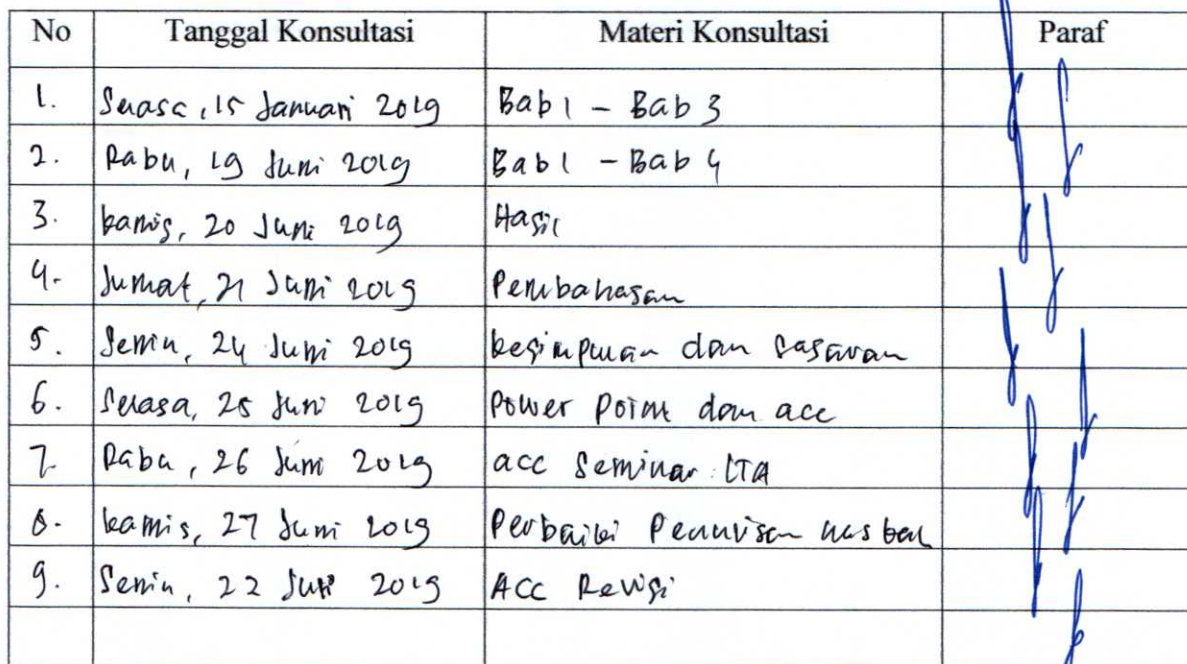 No Tanggal Konsultasi Materi Konsultasi Paraf
1. Selasa, 15 Januari 2019 Bab 1 - Bab 3
2. Rabu, 19 Juni 2019 Bab 1 - Bab 4
3. kamis, 20 Juni 2019 Hasil
4. Jumat, 21 Juni 2019 Pembahasan
5. Senin, 24 Juni 2019 kesimpulan dan sasaran
6. Selasa, 25 Juni 2019 Power Point dan acc
7. Rabu, 26 Juni 2019 acc Seminar LTA
8. kamis, 27 Juni 2019 Perbaiki Penulisan naskah
9. Senin, 22 Juli 2019 ACC Revisi